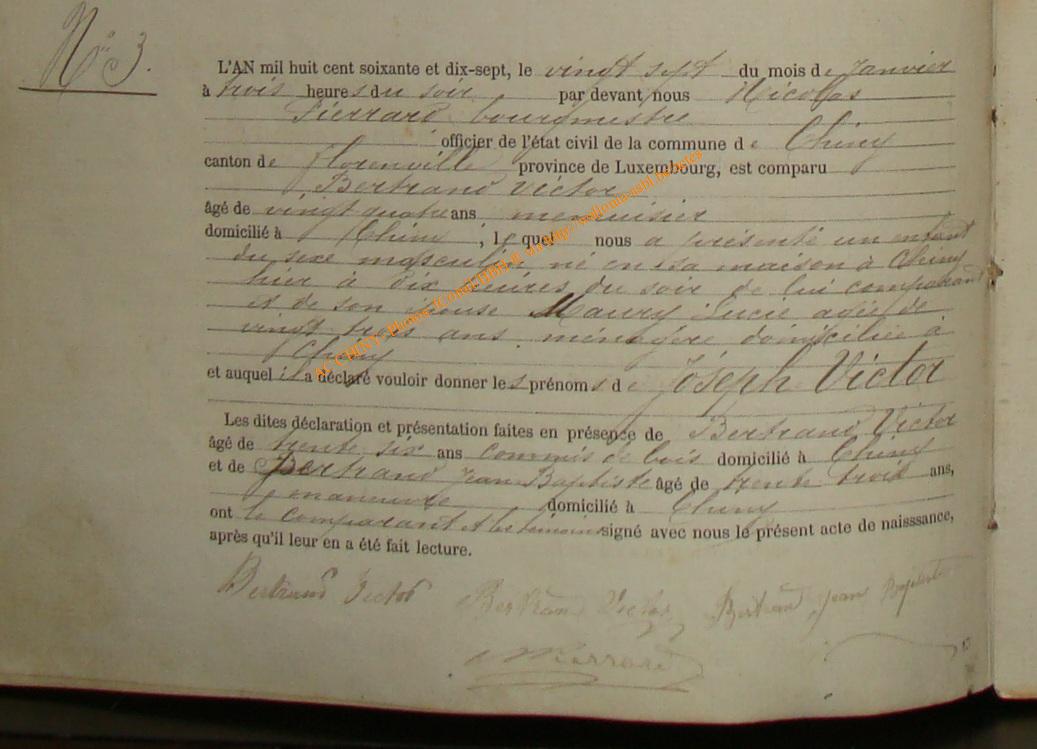 N° 3.
L'AN mil huit cent soixante et dix-sept, le vingt sept du mois de Janvier
à trois heures du soir par devant nous Nicolas
Pierrard bourgmestre
officier de l'état civil de la commune de Chiny
canton de Florenville province de Luxembourg, est comparu
Bertrand Victor
âgé de vingt quatre ans menuisier
domicilié à Chiny, lequel nous a présenté un enfant
du sexe masculin né en sa maison à Chiny
hier à dix heures du soir de lui comparant
et de son épouse Maury Lucie agée de
vingt trois ans, ménagère domiciliée à
Chiny
et auquel il a déclaré vouloir donner les prénoms de Joseph Victor
Les dites déclaration et présentation faites en présence de Bertrand Victor
âgé de trente six ans commis de bois domicilié à Chiny
et de Bertrand Jean Baptiste âgé de trente trois ans,
manœuvre domicilié à Chiny
ont le comparant et les témoins signé avec nous le présent acte de naisssance,
après qu'il leur en a été fait lecture.
Bertrand Victor Bertrand Victor Bertrand Jean Baptiste
Pierrard